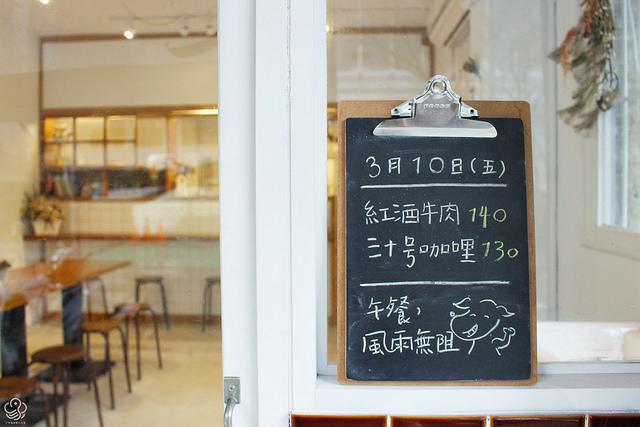 3月10日(五)
紅酒牛肉 140
三十号咖哩 130
午餐，
風雨無阻